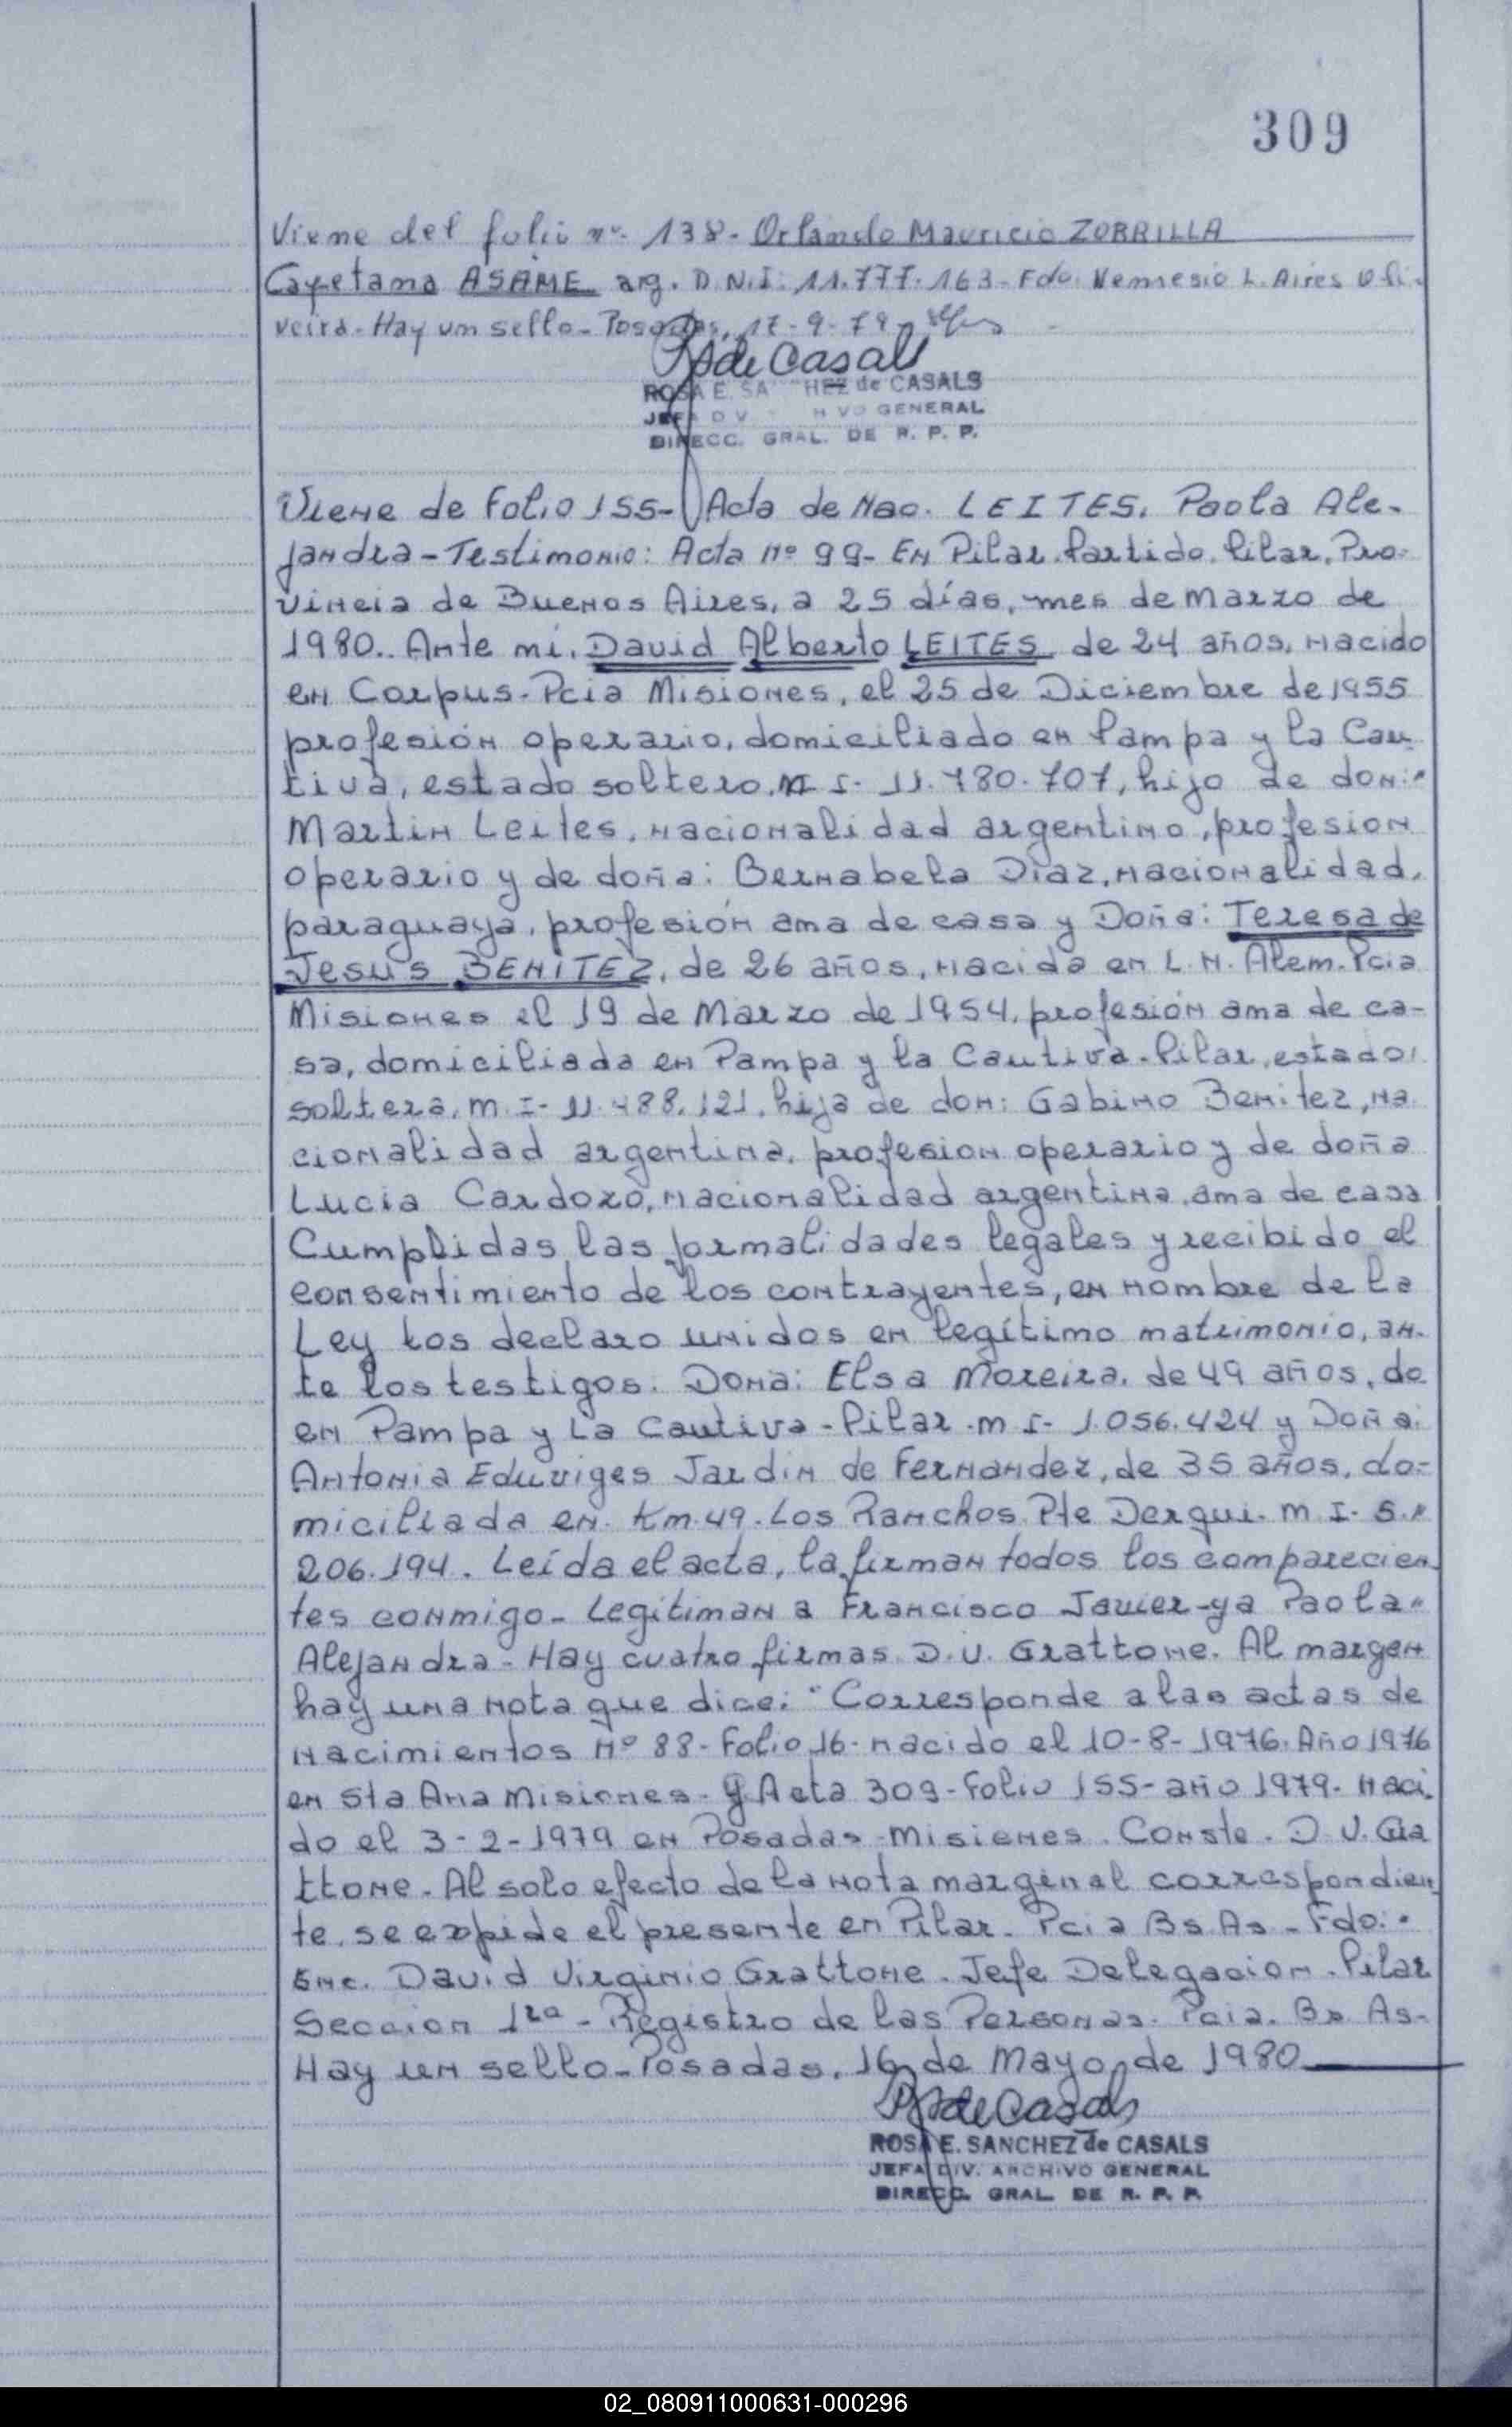 309
Viene del folio nº 138- Orlando Mauricio ZORRILLA
Cayetana ASAME arg. D.N.I. 11.777.163- Fdo. Nemesio L. Aires Oli-
veira- Hay un sello- Posadas, 17-9-79-
RSdeCasals
ROSA E. SA HEZ de CASALS
JEFA D V H VO GENERAL
DIRECC. GRAL. DE R. P. P.
Viene de Folio 155- Acta de Nac. LEITES, Paola Ale-
jandra- Testimonio: Acta nº 99- En Pilar. Partido. Pilar. Pro-
vincia de Buenos Aires, a 25 días, mes de Marzo de
1980.. Ante mi, David Alberto LEITES, de 24 años, nacido
en Corpus- Pcia Misiones, el 25 de Diciembre de 1955
profesión operario, domiciliado en Pampa y la Cau-
tiva, estado soltero, M I- 11.780.707, hijo de don:
Martin Leites, nacionalidad argentino, profesion
operario y de doña: Bernabela Diaz, nacionalidad,
paraguaya, profesión ama de casa y Doña: Teresa de
Jesús BENITEZ, de 26 años, nacida en L.N. Alem. Pcia
Misiones el 19 de Marzo de 1954, profesión ama de ca-
sa, domiciliada en Pampa y la Cautiva- Pilar, estado
soltera, M. I- 11.488.121, hija de don: Gabino Benitez, na
cionalidad argentina, profesion operario y de doña
Lucia Cardozo, nacionalidad argentina, ama de casa
Cumplidas las formalidades legales y recibido el
consentimiento de los contrayentes, en nombre de la
Ley los declaro unidos en legítimo matrimonio, an-
te los testigos. Dona: Elsa Moreira, de 49 años, do
en Pampa y La Cautiva- Pilar. M I- 1.056.424 y Doña:
Antonia Eduviges Jardin de Fernandez, de 35 años, do-
miciliada en Km. 49. Los Ranchos. Pte Derqui. M. I- 5.
206.194. Leída el acta, la firman todos los comparecien
tes conmigo- Legitiman a Francisco Javier- y a Paola
Alejandra- Hay cuatro firmas. D. V. Grattone. Al margen
hay una nota que dice: "Corresponde a las actas de
nacimientos Nº 88- Folio 16- nacido el 10-8-1976. Año 1976
en Sta Ana Misiones- y Acta 309- Folio 155- año 1979- naci-
do el 3-2-1979 en Posadas- Misiones. Conste. D. V. Gra
ttone. Al solo efecto de la nota marginal correspondien
te, se expide el presente en Pilar. Pcia Bs As- Fdo:
Enc. David Virginio Grattone. Jefe Delegacion. Pilar
Seccion 1ra- Registro de las Personas. Pcia. Bs As-
Hay un sello- Posadas, 16 de Mayo de 1980
RSdeCasals
ROSA E. SANCHEZ de CASALS
JEFA DIV. ARCHIVO GENERAL
DIRECC. GRAL. DE R. P. P.
02_080911000631-000296